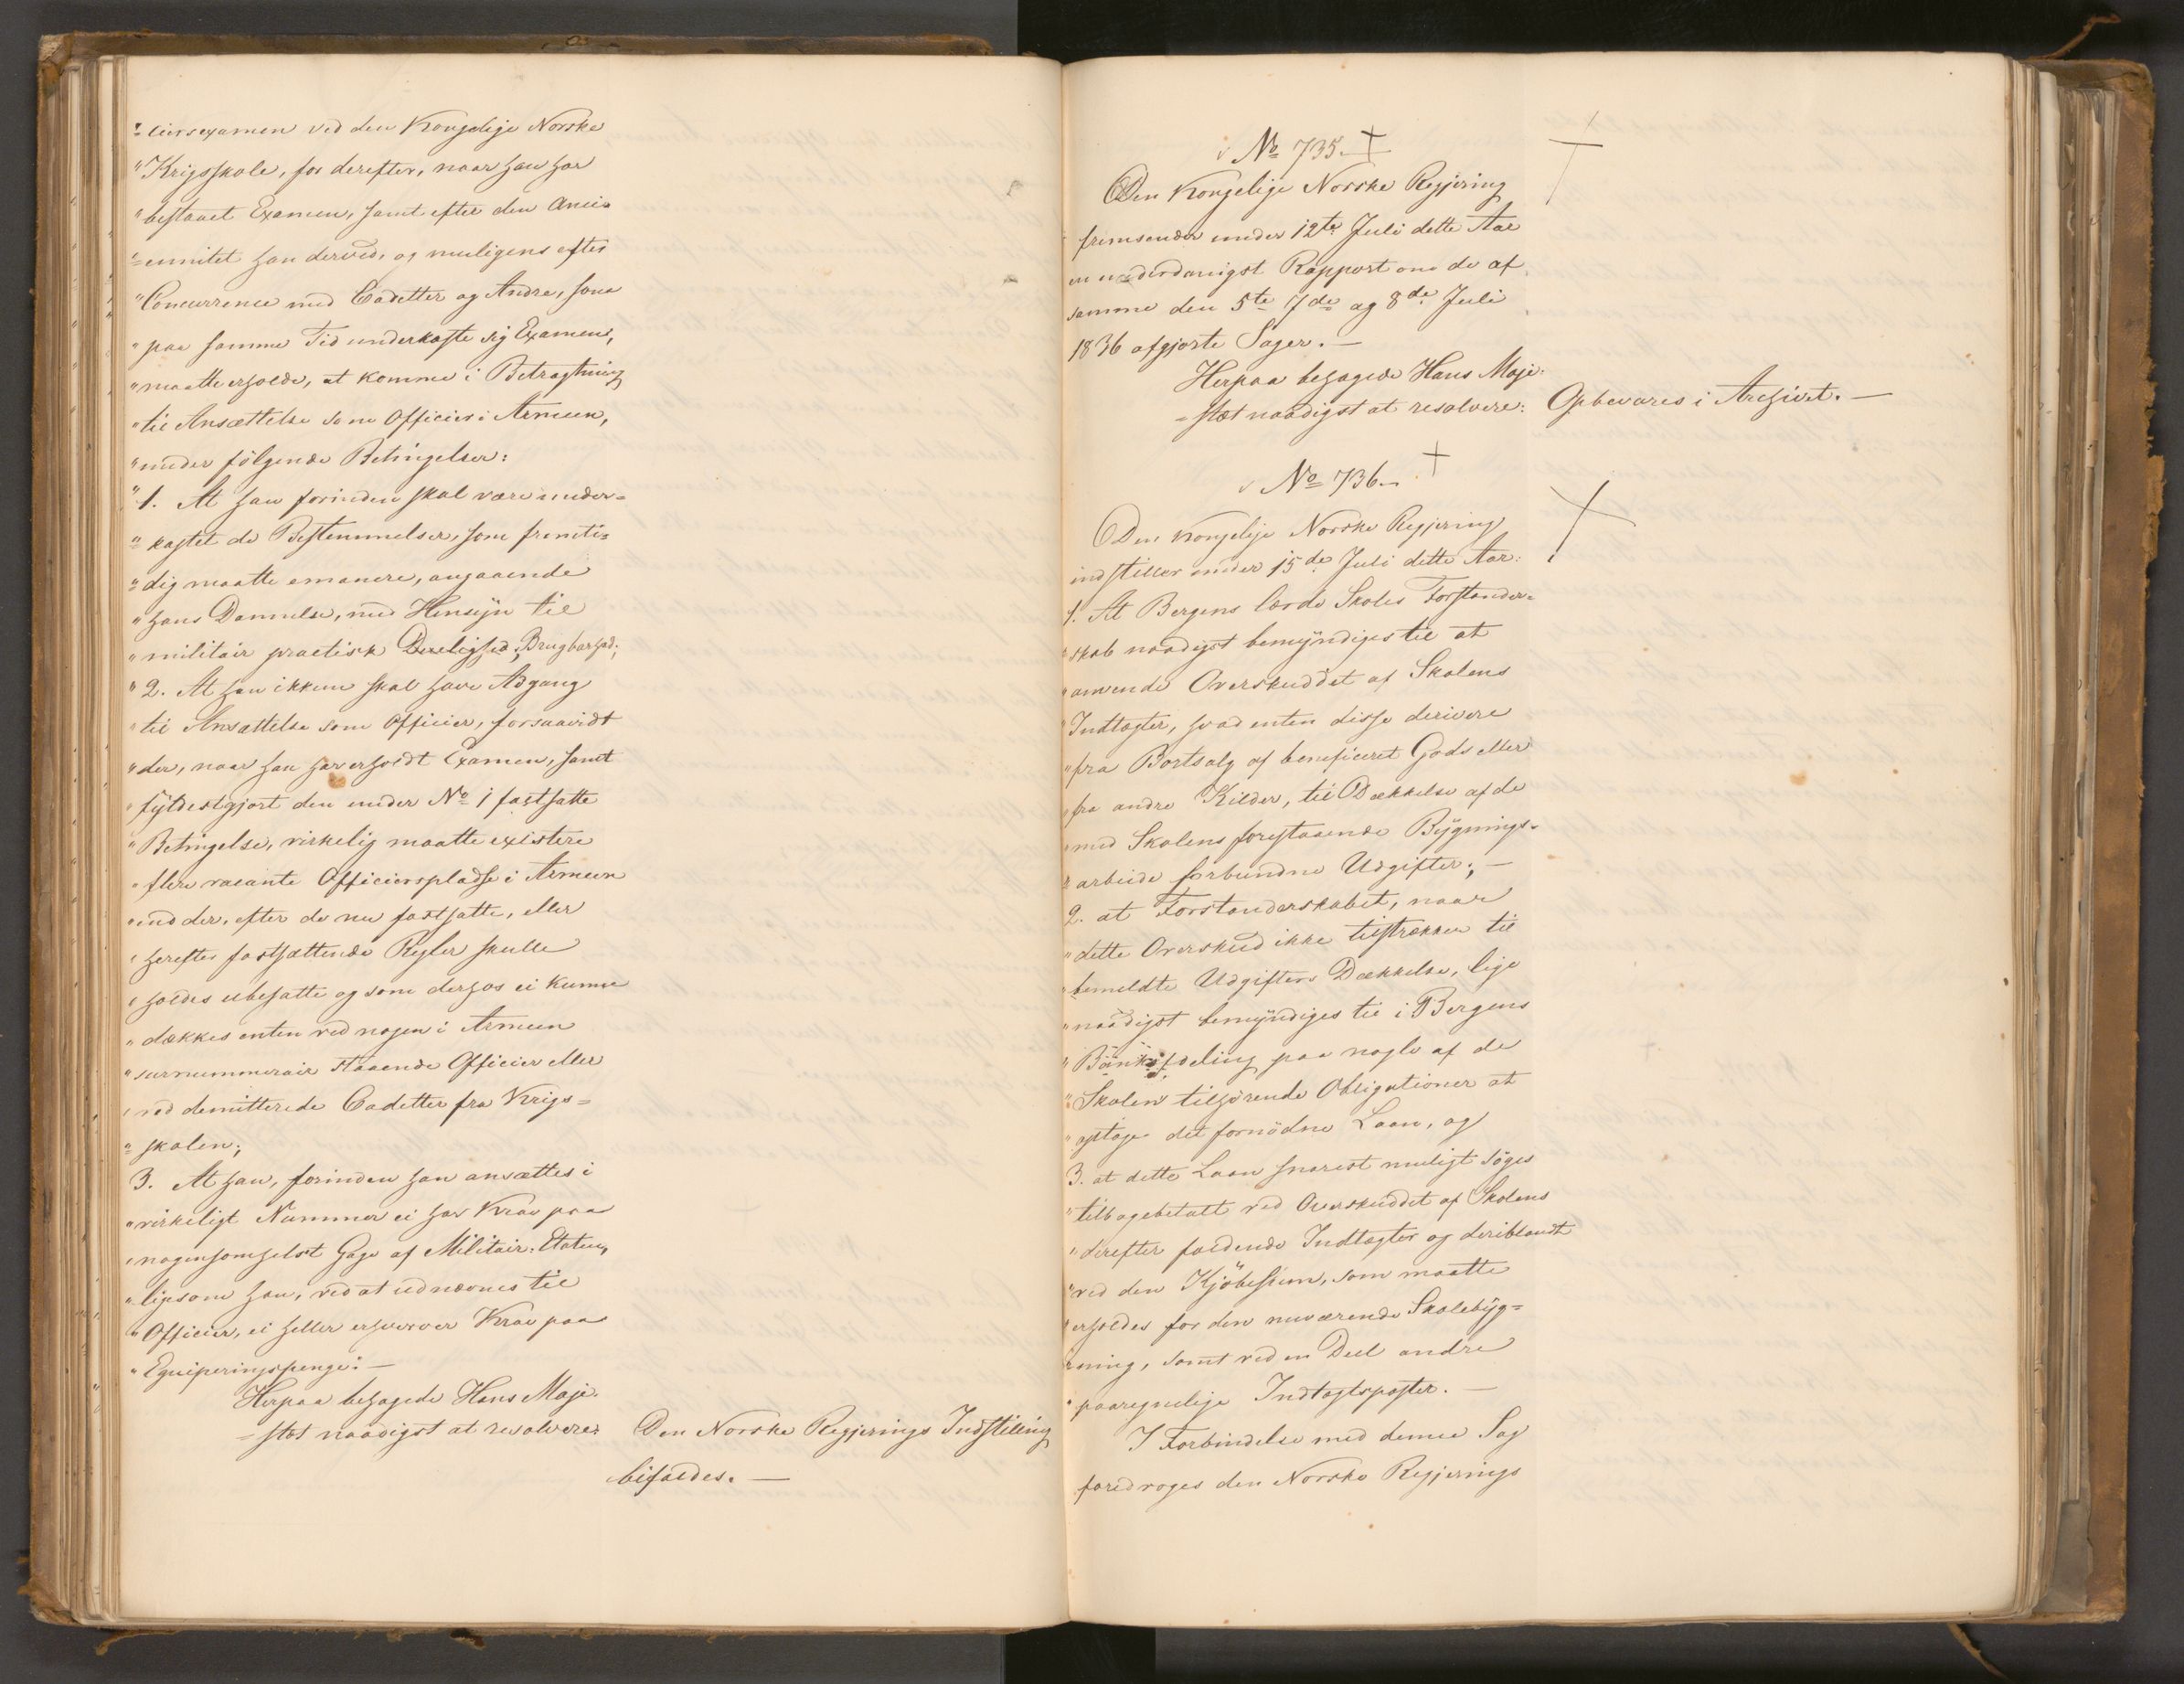 "=ciersexamen ved den Kongelige Norske
"Krigsskole, for derefter, naar han har
"bestaaet Examen, samt efter den Anci=
"=ennitet han derved, og muligens efter
"Concurrence med Cadetter og Andre, som
"paa samme Tid underkaste sig Examen,
"maatte erholde, at komme i Betragtning
"til Ansættelse som Officier i Armeen,
"under følgende Betingelser:
"1. At han forinden skal være under=
"=kastet de Bestemmelser, som fremti=
"=dig maatte emanere, angaaende
"hans Dannelse, med Hensyn til
"militair practisk Duelighed, Brugbarhed;
"2. At han ikkun skal have Adgang
"til Ansættelse som Officier, forsaavidt
"der, naar han har erholdt Examen, samt
"fyldestgjort den under No 1 fastsatte
"Betingelse, virkelig maatte existere
"flere vacante Officierspladse i Armeen
"end der, efter de nu fastsatte, eller
"herefter fastsættende Regler skulle
"holdes ubesatte og som derhos ei kunne
"dækkes enten ved nogen i Armeen
"surnummerair staaende Officier eller
"ved demitterede Cadetter fra Krigs=
"=skolen;
3. At han, forinden han ansættes i
"virkeligt Nummer ei har Krav paa
"nogensomhelst Gage af Militair-Etaten,
"ligesom han, ved at udnævnes til
"Officier, ei heller erhverver Krav paa
"Equiperingspenge". —
Herpaa behagede Hans Maje-
=stæt naadigst at resolvere: Den Norske Regjerings Indstilling
bifaldes. —
No 735.
Den Kongelige Norske Regjering
fremsender under 12te Juli dette Aar
en underdanigst Rapport om de af
samme den 5te 7de og 8de Juli
1836 afgjorte Sager. —
Herpaa behagede Hans Maje-
=stæt naadigst at resolvere: Opbevares i Archivet. —
No 736.
Den Kongelige Norske Regjering
indstiller under 15de Juli dette Aar:
1. At Bergens lærde Skoles Forstander=
"skab naadigst bemyndiges til at
"anvende Overskuddet af Skolens
"Indtægter, hvad enten disse derivere
"fra Bortsalg af beneficeret Gods eller
"fra andre Kilder, til Dækkelse af de
"med Skolens forestaaende Bygnings=
"arbeide forbundne Udgifter; —
2. at Forstanderskabet, naar
"dette Overskud ikke tilstrækker til
"bemeldte Udgifters Dækkelse, lige
"naadigst bemyndiges til i Bergens
"Bankafdeling paa nogle af de
"Skolen tilhørende Obligationer at
"optage det fornødne Laan, og
3. at dette Laan snarest muligt søges
"tilbagebetalt ved Overskuddet af Skolens
"derefter faldende Indtægter og deriblandt
"ved den Kjøbesum, som maatte
"erholdes for den nuværende Skolebyg=
"=ning, samt ved en Deel andre
"paaregnelige Indtægtsposter. —
I Forbindelse med denne Sag
foredroges den Norske Regjerings